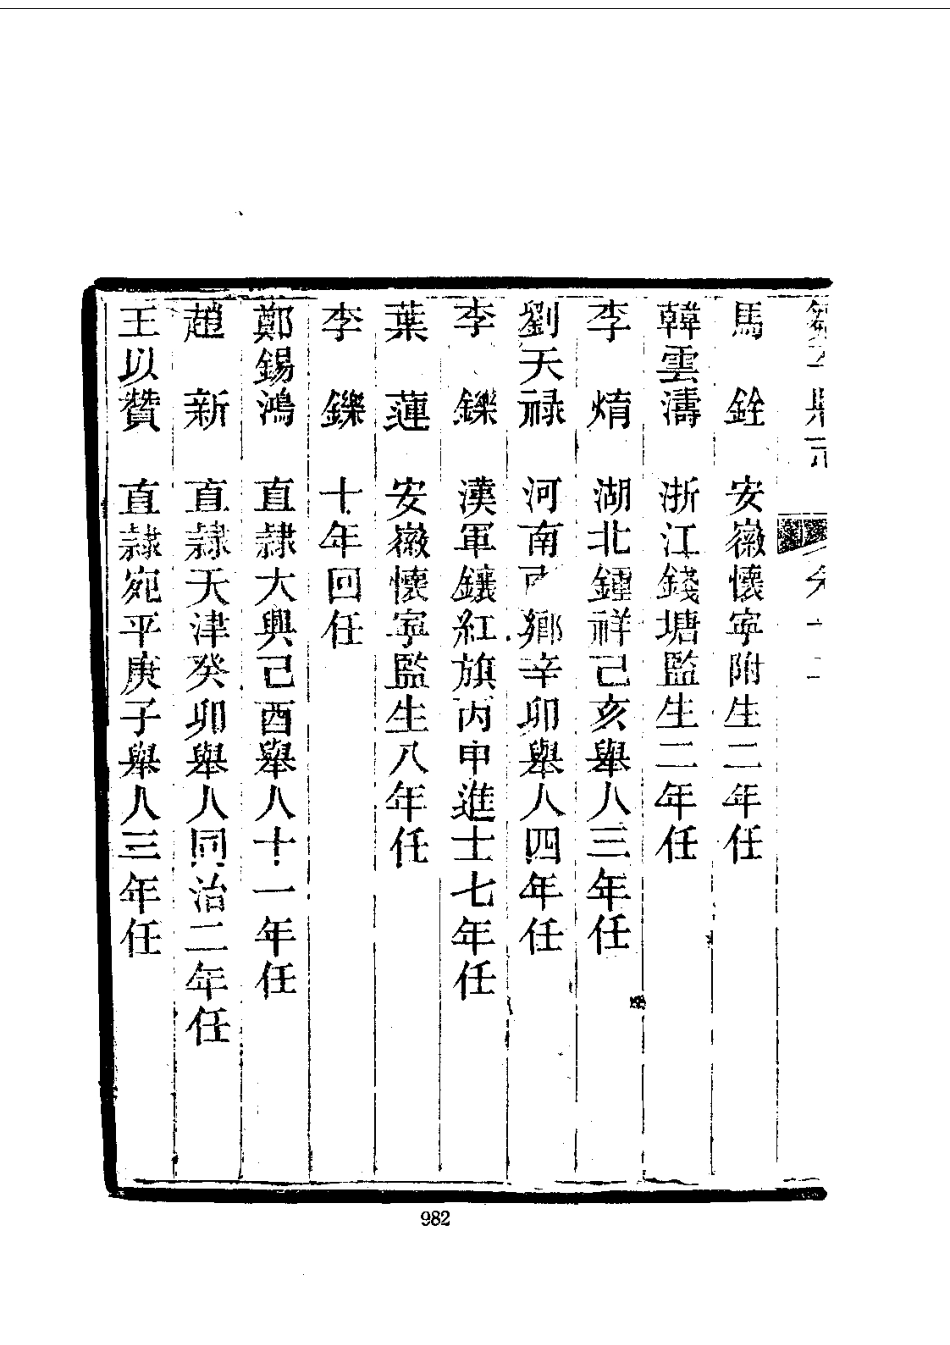 馬　銓　安徽懷寧附生二年任
韓雲濤　浙江錢塘監生二年任
李　焴　湖北鍾祥己亥舉人三年任
劉天祿　河南鄉辛卯舉人四年任
李　鑠　漢軍鑲紅旗丙申進士七年任
葉　蓮　安徽懷寧監生八年任
李　鑠　十年回任
鄭錫鴻　直隸大興己酉舉人十一年任
趙　新　直隸天津癸卯舉人同治二年任
王以贊　直隸宛平庚子舉人三年任
982